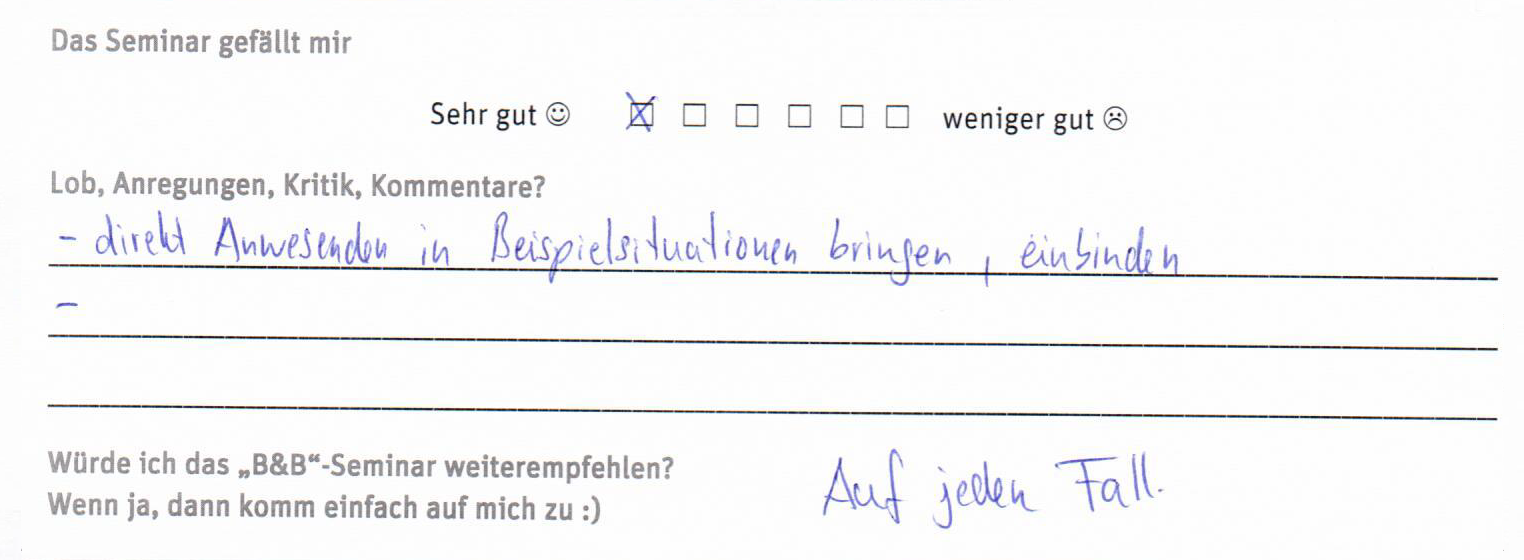 Das Seminar gefällt mir
Sehr gut ☺ ☒ ☐ ☐ ☐ ☐ ☐ weniger gut ☹
Lob, Anregungen, Kritik, Kommentare?
- direkt Anwesenden in Beispielsituationen bringen, einbinden
-
Würde ich das „B&B“-Seminar weiterempfehlen?
Wenn ja, dann komm einfach auf mich zu :)
Auf jeden Fall.